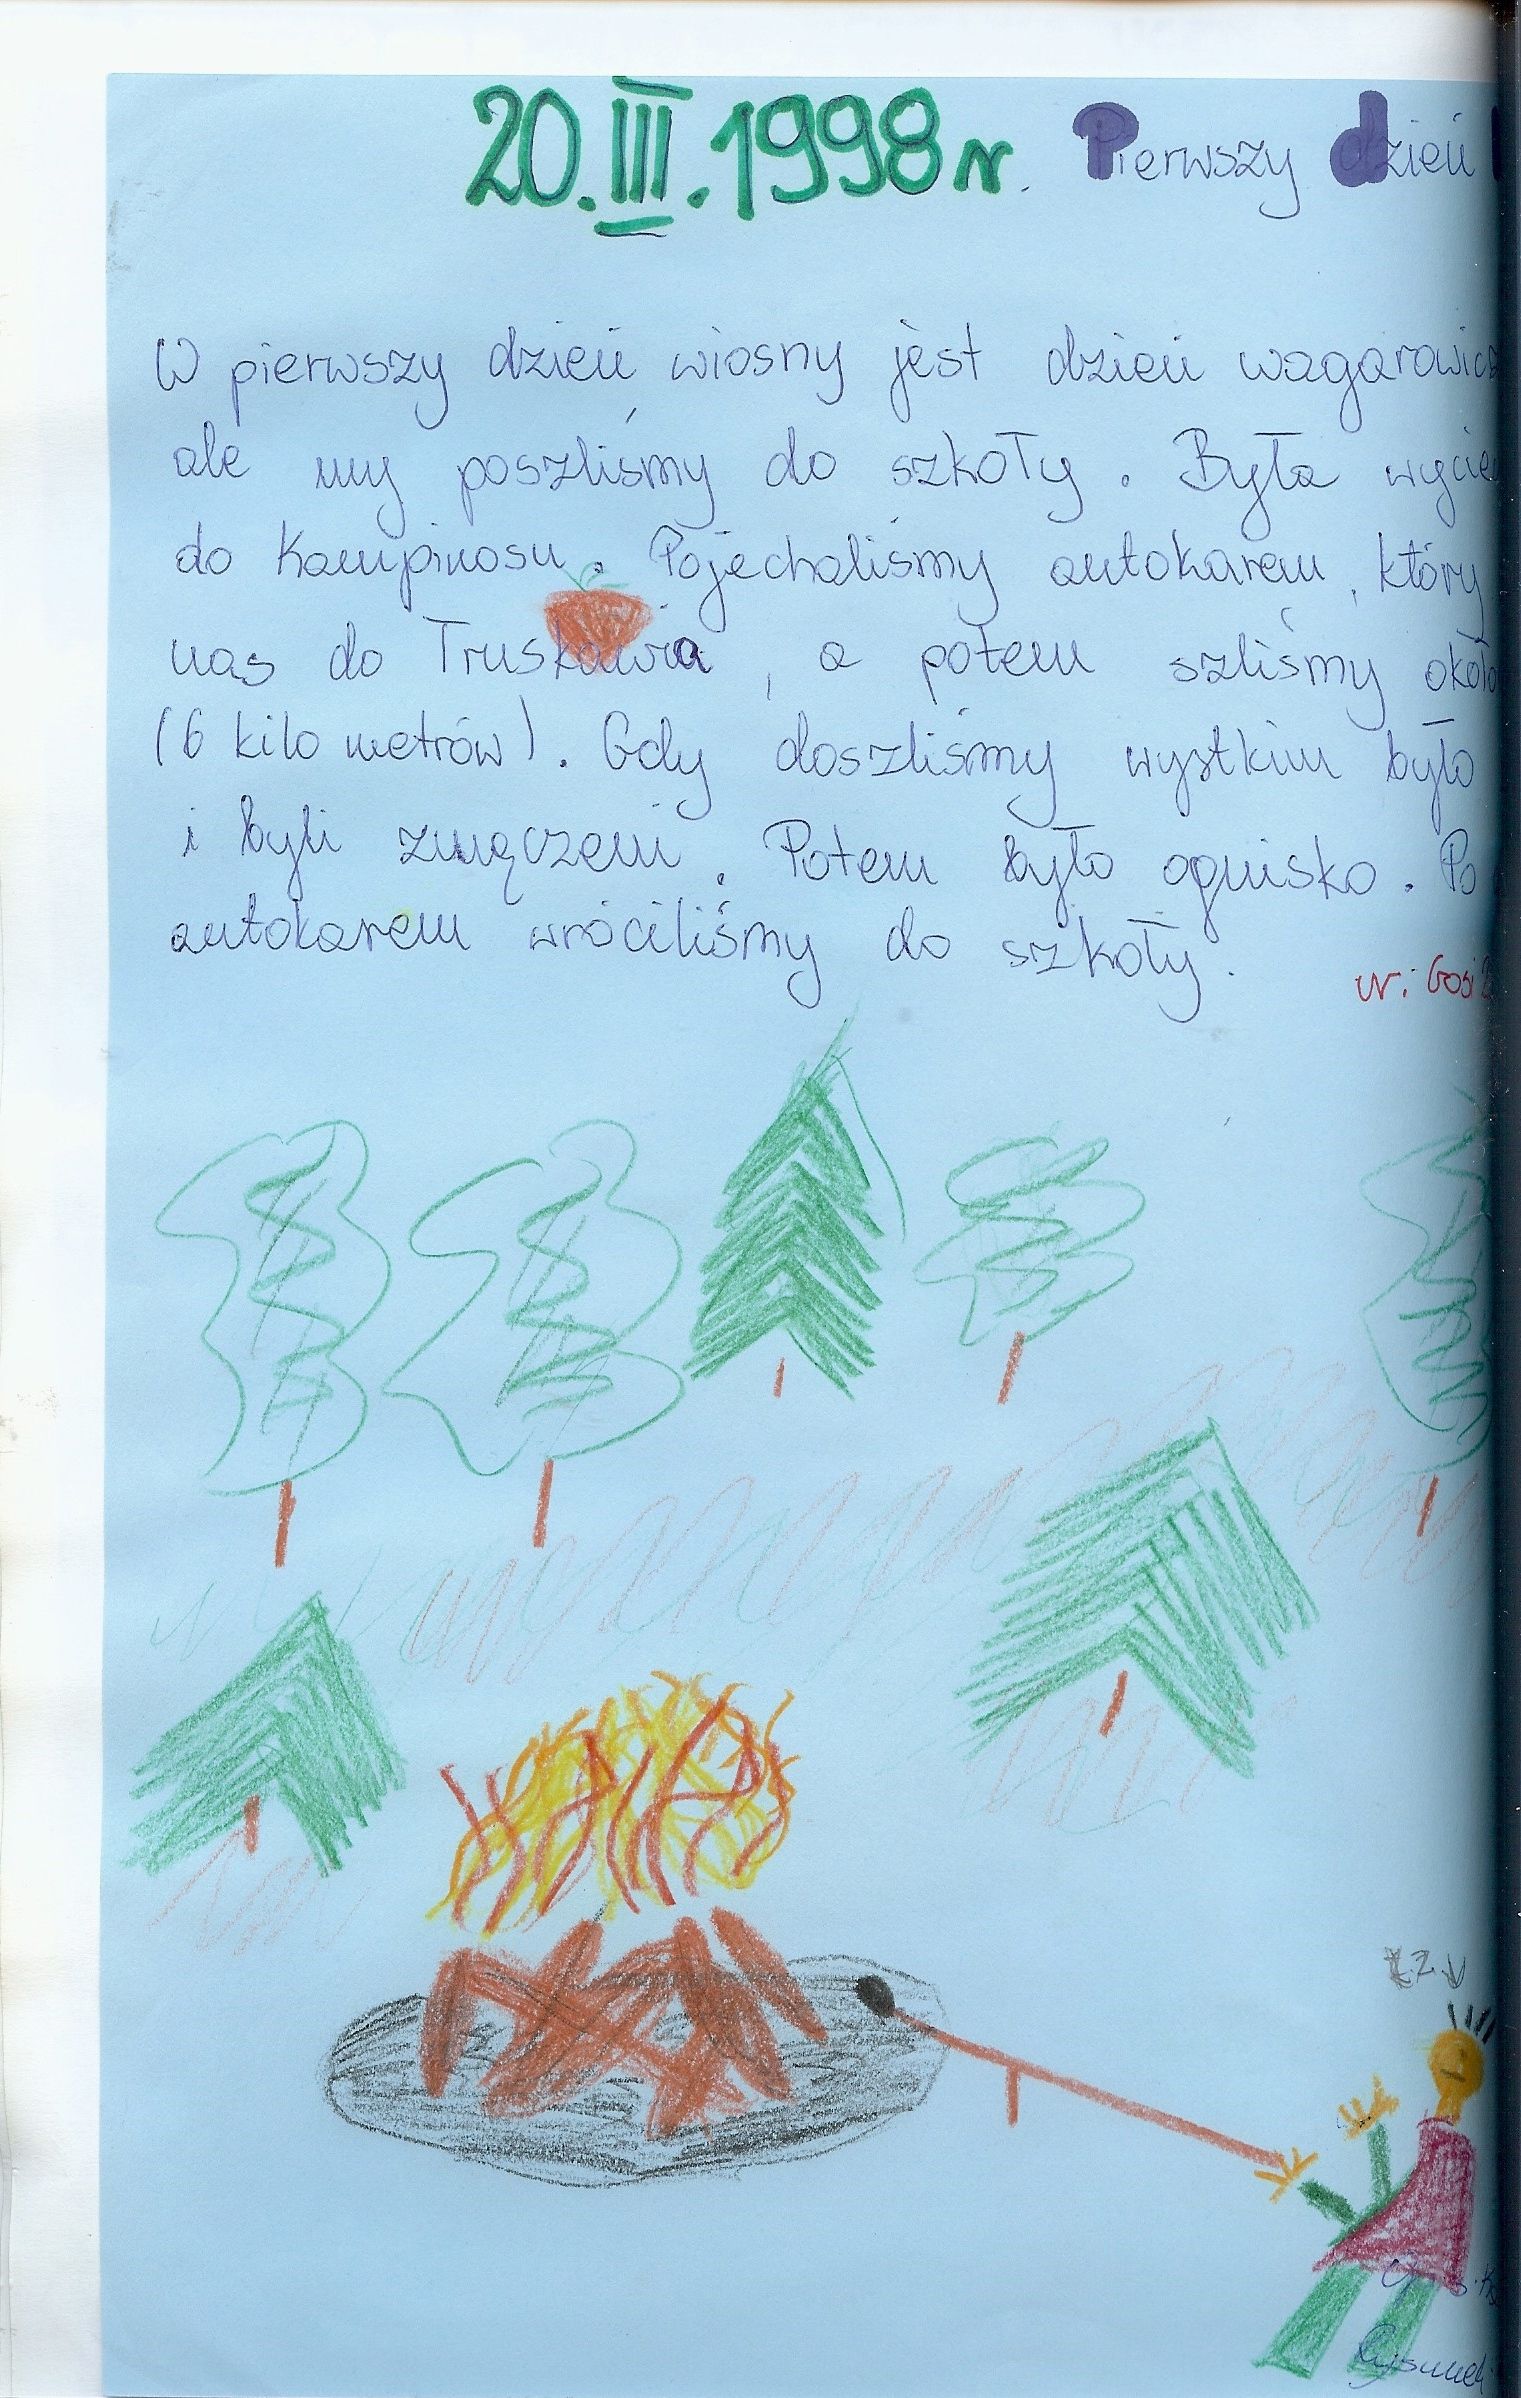 20.III.1998 r. Pierwszy dzień
W pierwszy dzień wiosny jest dzień wagarowicz
ale my poszliśmy do szkoły. Była wycie
do Kampinosu. Pojechaliśmy autokarem, który
nas do Truskawia, a potem szliśmy około
(6 kilo metrów). Gdy doszliśmy wystkim było
i byli zmęczeni. Potem było ognisko. Po
autokarem wróciliśmy do szkoły.
w: Gosi
Rysunek